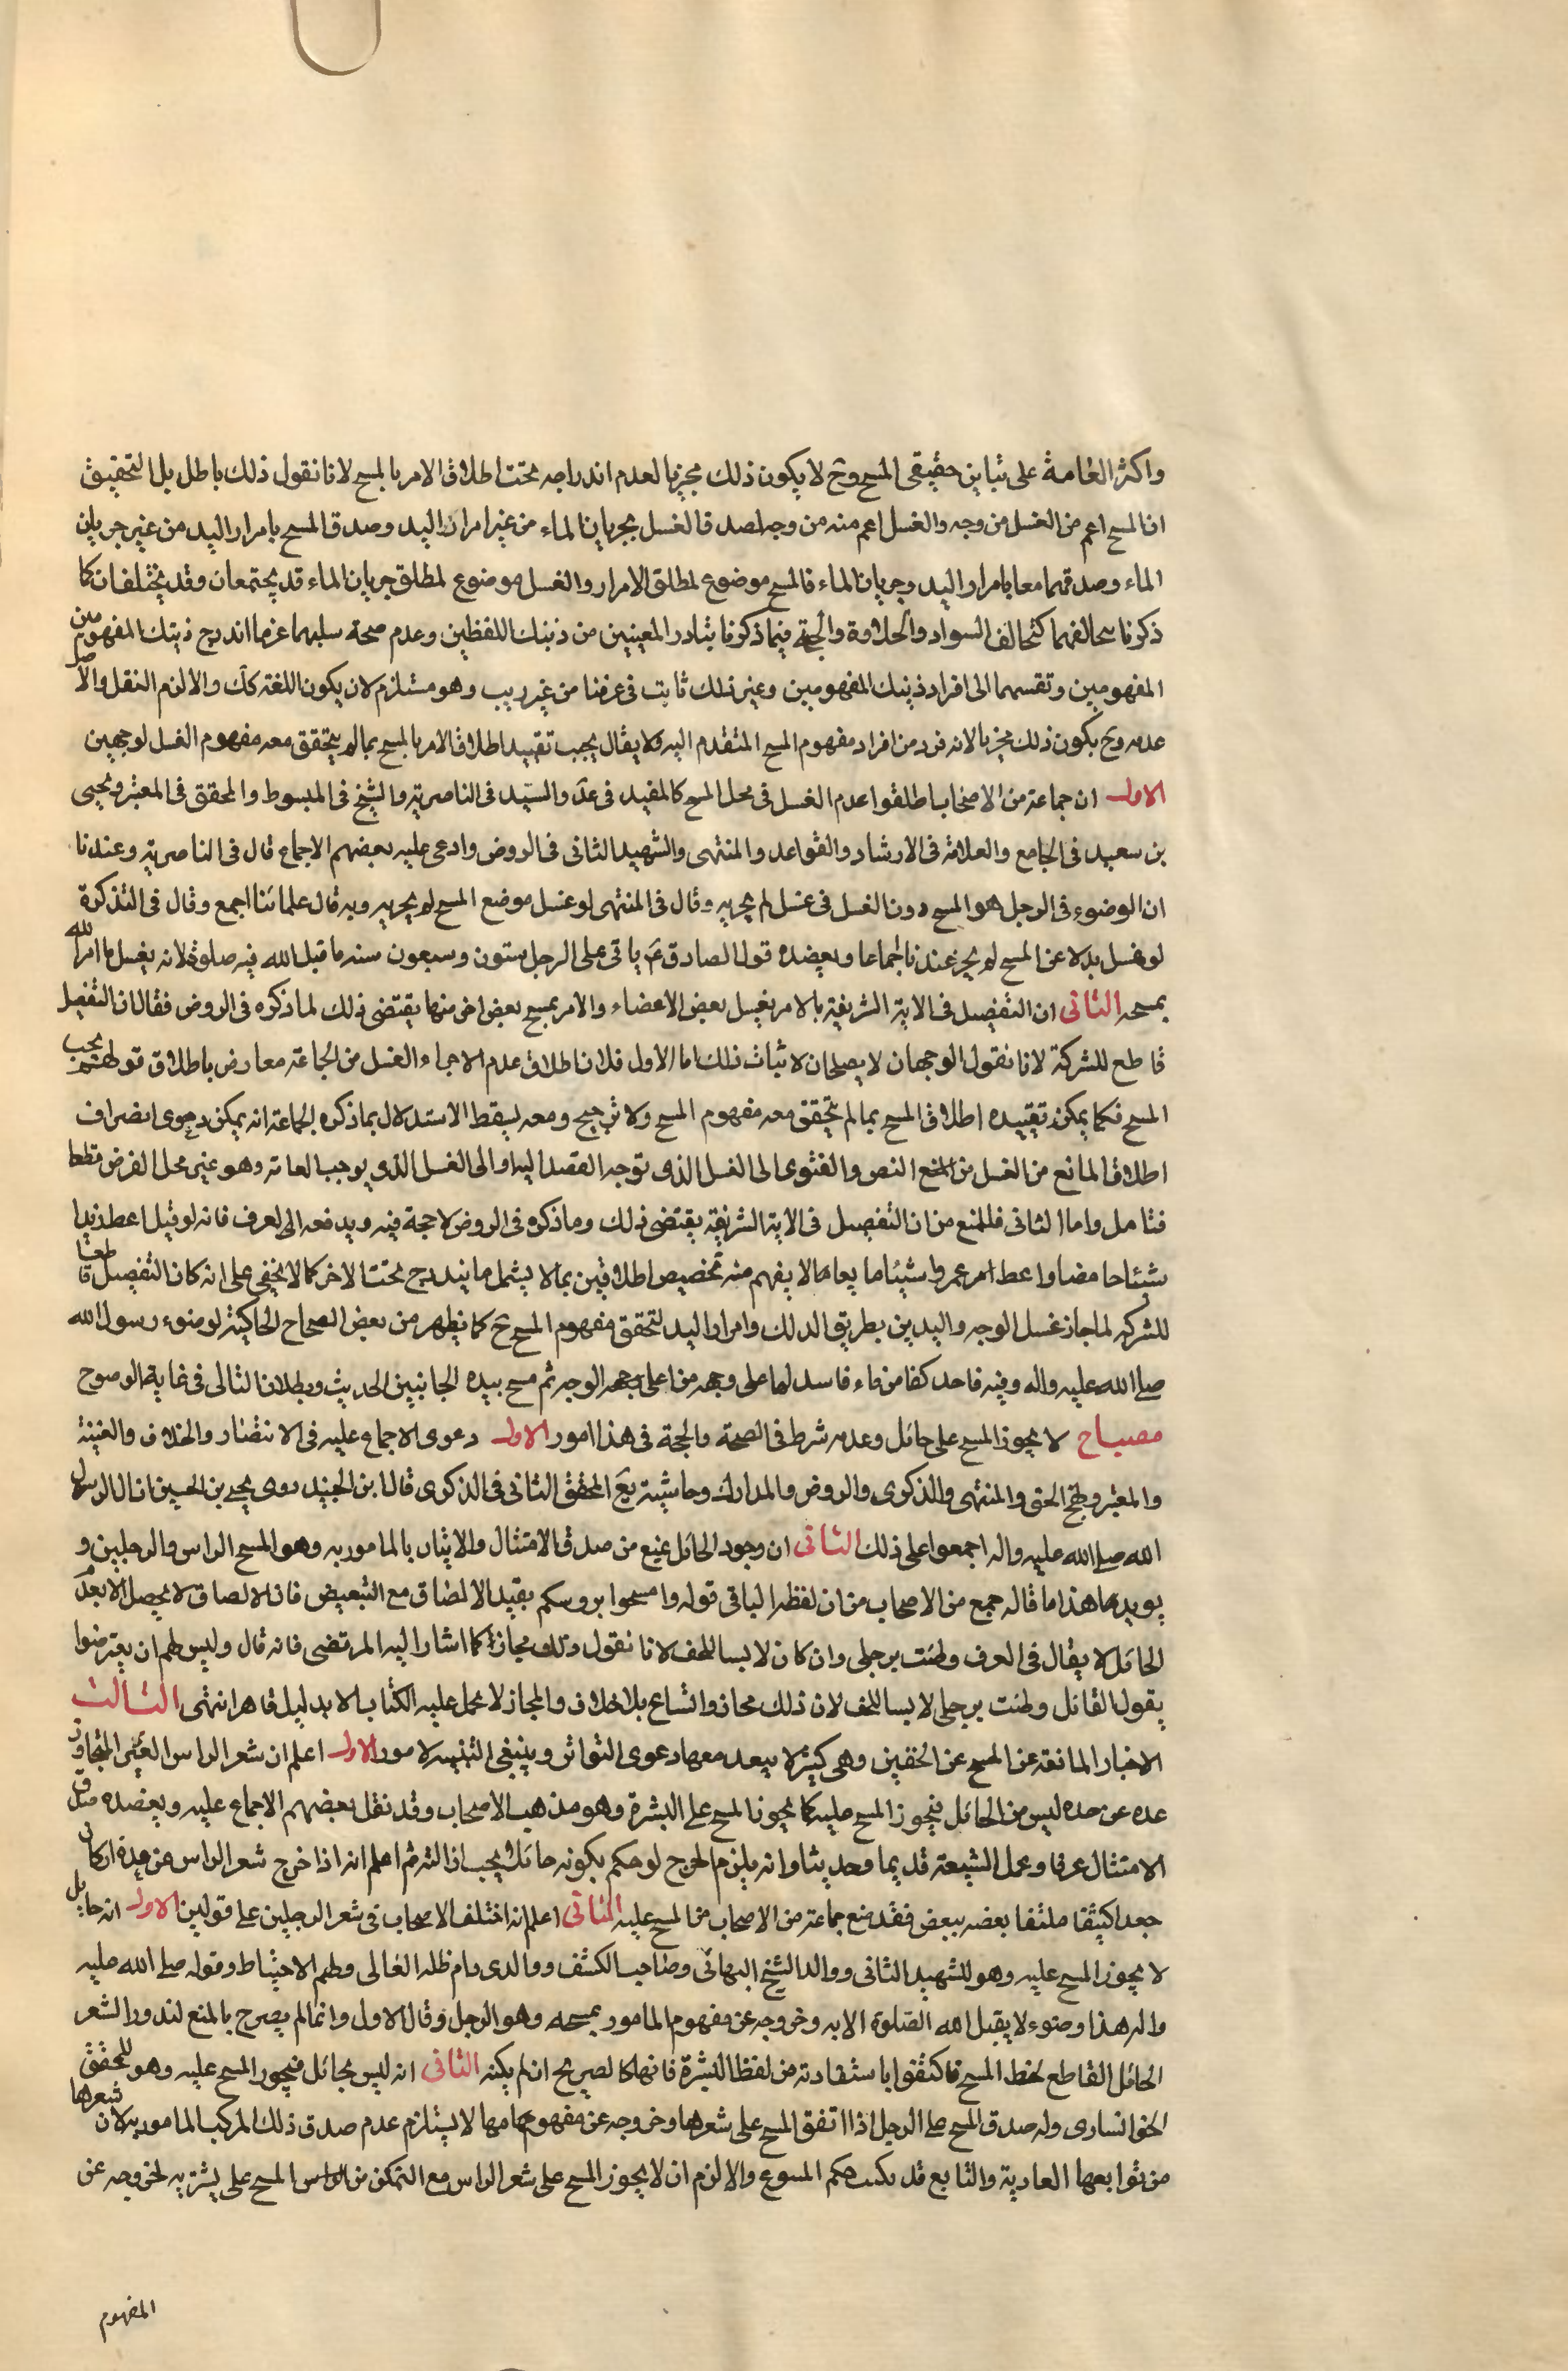 واكثر العامة على تباين حقيقى المسح وح لا يكون ذلك مجزيا لعدم اندراجه تحت اطلاق الامر بالمسح لانا نقول ذلك باطل بل التحقيق
ان المسح اعم من الغسل من وجه والغسل اعم منه من وجه لصدق الغسل بجريان الماء من غير امرار اليد وصدق المسح بامرار اليد من غير جريان
الماء وصدقهما معا بامرار اليد وجريان الماء فالمسح موضوع لمطلق الامرار والغسل موضوع لمطلق جريان الماء قد يجتمعان وقد يختلفان كما
ذكرنا تخالفهما كتخالف السواد والحلاوة والحجة فيما ذكرنا تبادر المعنيين من ذينك اللفظين وعدم صحة سلبهما عما اندرج ذينك المفهومين
المفهومين وتقسيمها الى افراد ذينك المفهومين وغير ذلك ثابت فى عرفنا من غير ريب وهو مستلزم لان يكون اللغة كك والا لزم النقل والاصل
عدمه وح يكون ذلك مجزيا لانه فرد من افراد مفهوم المسح المتقدم اليه ولا يقال يجب تقييد اطلاق الامر بالمسح بما لم يتحقق معه مفهوم الغسل لوجهين
الاول ان جماعة من الاصحاب اطلقوا عدم الغسل فى محل المسح كالمفيد فى عد والسيد فى الناصرية والشيخ فى المبسوط والمحقق فى المعتبر ويحيى
بن سعيد فى الجامع والعلامة فى الارشاد والقواعد والمنتهى والشهيد الثانى فى الروض وادعى عليه بعضهم الاجماع قال فى الناصرية وعندنا
ان الوضوء فى الرجل هو المسح دون الغسل فى غسل لم يجزيه وقال فى المنتهى لو غسل موضع المسح لم يجزيه وبه قال علمائنا اجمع وقال فى التذكرة
لو غسل بدلا عن المسح لم يجز عندنا اجماعا ويعضده قول الصادق ع ياتى على الرجل ستون وسبعون سنه ما قبل الله فيه صلوة لانه يغسل ما امر الله
بمسحه الثانى ان التفصيل فى الاية الشريفة بالامر بغسل بعض الاعضاء والامر بمسح بعض اخر منها يقتضى ذلك لما ذكره فى الروض فقال ان التفصيل
قاطع للشركة لانا نقول الوجهان لا يصلحان لاثبات ذلك اما الاول فلان اطلاق عدم الاجزاء الغسل من الجماعة معارض باطلاق قولهم يجب
المسح فكما يمكن تقييده اطلاق المسح بما لم يتحقق معه مفهوم المسح ولا ترجيح ومعه يسقط الاستدلال بما ذكره الجماعة انه يمكن دعوى انصراف
اطلاق المانع من الغسل من المنع النص والفتوى الى الغسل الذى توجه القصد اليه والى الغسل الذى يوجب العامة وهو عين محل الفرض قطعا
فتامل واما الثانى فللمنع من ان التفصيل فى الاية الشريفة يقتضى ذلك وما ذكره فى الروض لا حجة فيه ويدفعه الى العرف فانه لو قيل اعط زيدا
شيئا حامضا واعط امر عمروا شيئا ما يعا ما لا يفهم منه تخصيص اطلاقين بما لا يشمل ما يندرج تحت الاخر كما لا يخفى على انه كان التفصيل قاطعا
للشركة لما جاز غسل الوجه واليدين بطريق الدلك وامرار اليد لتحقق مفهوم المسح ح كما يظهر من بعض الصحاح الحاكية لوضوء رسول الله
صلى الله عليه واله وفيه فاخذ كفا من ماء فاسدلها على وجهه من اعلى وجهه الوجه ثم مسح بيده الجانبين الحديث وبطلان التالى فى غاية الوضوح
مصباح لا يجوز المسح على حائل وعدمه شرط فى الصحة والحجة فى هذا امور الاول دعوى الاجماع عليه فى الانتصار والخلاف والغنية
والمعتبر ونهج الحق والمنتهى والذكرى والروض والمدارك وحاشية يع المحقق الثانى فى الذكرى قال ابن الجنيد روى يحيى بن الحسين ان ال الرسول
الله صلى الله عليه واله اجمعوا على ذلك الثانى ان وجود الحائل يمنع من صدق الامتثال والاتيان بالمامور به وهو المسح الراس والرجلين و
يويد هذا ما قاله جمع من الاصحاب من ان لفظه الباقى قوله وامسحوا بروسكم يفيد الالصاق مع التبعيض فان الالصاق لا يحصل الا بعد
الحائل لا يقال فى العرف وطئت برجلى وان كان لابسا للخف لانا نقول ذلك مجاز كما اشار اليه المرتضى فانه قال وليس لهم ان يعترضوا
بقول القائل وطئت برجلى لابسا للخف لان ذلك مجاز واتساع بلا خلاف والمجاز لا يحمل عليه الكتاب الا بدليل قاهر انتهى الثالث
الاخبار المانعة عن المسح عن الخفين وهى كثيرة لا يبعد معها دعوى التواتر وينبغى التنبيه لامور الاول اعلم ان شعر الراس الغير المتجاوز
عده عن حده ليس من الحائل فيجوز المسح عليه كما يجوز المسح على البشرة وهو مذهب الاصحاب وقد نقل بعضهم الاجماع عليه ويعضده صدق
الامتثال عرفا وعمل الشيعة قديما وحديثا وانه يلزم الحرج لو حكم بكونه حائلا ويجب ازالته ثم اعلم انه اذا خرج شعر الراس عن حده او كان
جعدا كثيفا ملتفا بعضه ببعض فقد منع جماعة من الاصحاب من المسح عليه الثانى اعلم انه اختلف الاصحاب فى شعر الرجلين على قولين الاول انه حايل
لا يجوز المسح عليه وهو للشهيد الثانى ووالد الشيخ البهائى وصاحب الكشف ووالدى دام ظله العالى ولهم الاحتياط وقوله صلى الله عليه
واله هذا وضوء لا يقبل الله الصلوة الا به وخروجه عن مفهوم المامور بمسحه وهو الرجل وقال الاول وانما لم يصرح بالمنع لندور الشعر
الحائل القاطع لخط المسح فاكتفوا باستفادته من لفظ البشرة فانها كالصريح ان لم يكنه الثانى انه ليس بحائل فيجوز المسح عليه وهو للمحقق
الخوانسارى وله صدق المسح على الرجل اذا اتفق المسح على شعرها وخروجه عن مفهومها لا يستلزم عدم صدق ذلك المركب المامور به لان شعرها
من توابعها العادية والتابع قد يكتسب حكم المتبوع والا لزم ان لا يجوز المسح على شعر الراس مع التمكن من الراس المسح على بشرته لخروجه عن
المفهوم